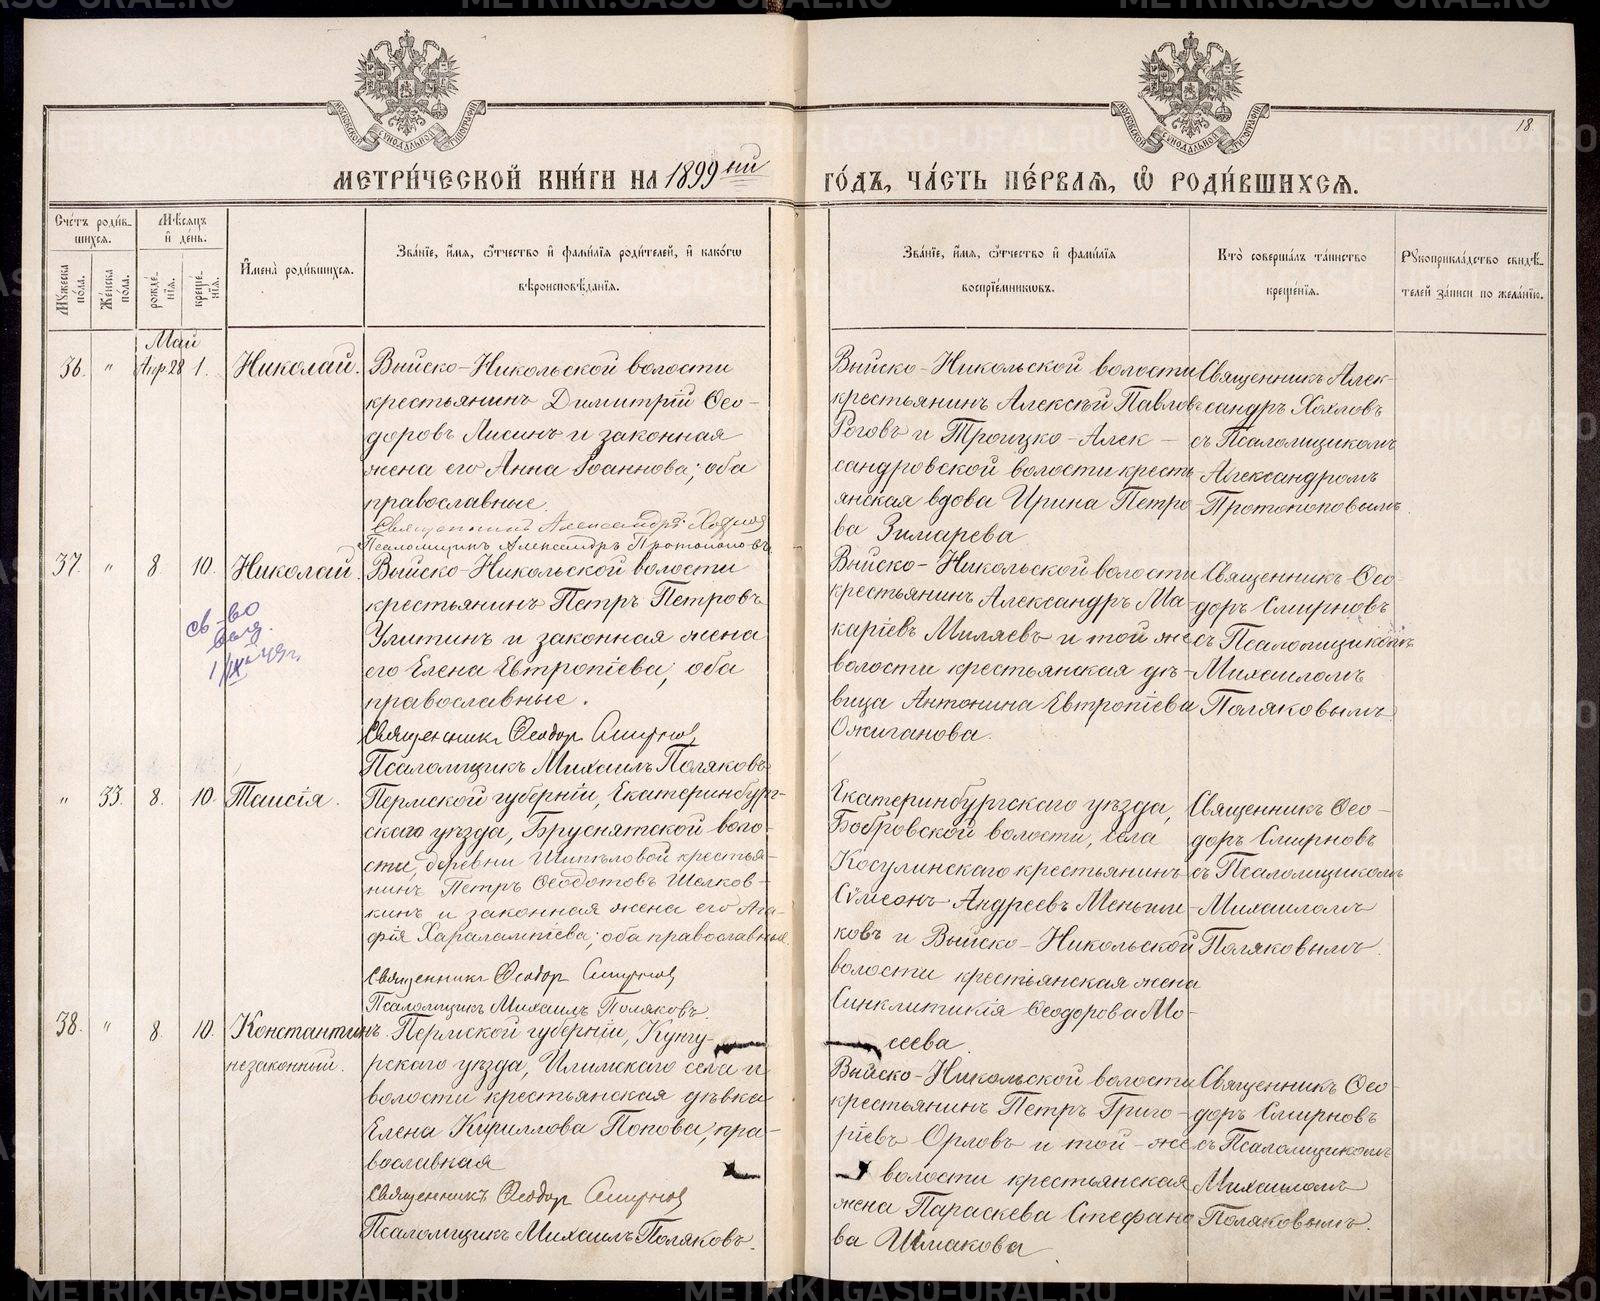 18
МЕТРИ́ЧЕСКОЙ КНИ́ГИ НА 1899 ый
ГО́ДЪ, ЧА́СТЬ ПЕ́РВАЯ, Ѡ҆ РОДИ́ВШИХСЯ.
Сче́тъ роди́в-
шихся.
Мѣ́сяцъ
и҆ де́нь.
Мꙋжеска по́ла.
Же́нска по́ла.
рожде́-нїя.
креще́-нїя.
И҆мена̀ роди́вшихся.
Зва́нїе, и҆́мя, ѻ҆́тчество и҆ фами́лїя роди́телей, и҆ како́гѡ
вѣроисповѣ́данїя.
Зва́нїе, и҆́мя, ѻ҆́тчество и҆ фами́лїя
воспрїе́мниковъ.
Кто̀ соверша́лъ та́инство
креще́нїя.
Рꙋкоприкла́дство свидѣ́-
телей за́писи по жела́нїю.
Май
36. „ Апр 28 1. Николай.
Выйско-Никольской волости
крестьянинъ Димитрій Ѳео-
доровъ Лисинъ и законная
жена его Анна Іоаннова; оба
православные.
Священникъ Александръ Хохловъ
Псаломщикъ Александръ Протопоповъ
Выйско-Никольской волости
крестьянинъ Алексѣй Павлов
Роговъ и Троицко-Алек-
сандровской волости кресть-
янская вдова Ирина Петро
ва Зимарева
Священникъ Алек-
сандръ Хохловъ
съ Псаломщикомъ
Александромъ
Протопоповымъ.
37. „ 8. 10. Николай.
св-во
выд.
1/IX-49г.
Выйско-Никольской волости
крестьянинъ Петръ Петровъ
Улитинъ и законная жена
его Елена Евтропіева; оба
православные.
Священникъ Ѳеодоръ Смирновъ
Псаломщикъ Михаилъ Поляковъ
Выйско-Никольской волости
крестьянинъ Александръ Ма-
каріевъ Миляевъ и той же
волости крестьянская дѣ-
вица Антонина Евтропіева
Ожиганова.
Священникъ Ѳео-
доръ Смирновъ
съ Псаломщикомъ
Михаиломъ
Поляковымъ
„ 33. 8. 10. Таисія.
Пермской губерніи, Екатеринбург-
скаго уѣзда, Бруснятской воло-
сти, деревни Шипѣловой крестья-
нинъ Петръ Ѳеодотовъ Шелков-
кинъ и законная жена его Ага-
фія Харалампіева; оба православные.
Священникъ Ѳеодоръ Смирновъ
Псаломщикъ Михаилъ Поляковъ.
Екатеринбургскаго уѣзда,
Бобровской волости, села
Косулинскаго крестьянинъ
Сѵмеонъ Андреевъ Меньши-
ковъ и Выйско-Никольской
волости крестьянская жена
Синклитикія Ѳеодорова Мо-
сеева.
Священникъ Ѳео-
доръ Смирновъ
съ Псаломщикомъ
Михаиломъ
Поляковымъ.
38. „ 8. 10. Константинъ
незаконный.
Пермской губерніи, Кунгу-
рскаго уѣзда, Илимскаго села и
волости крестьянская дѣвка
Елена Кириллова Попова, пра-
вославная
Священникъ Ѳеодоръ Смирновъ
Псаломщикъ Михаилъ Поляковъ.
Выйско-Никольской волости
крестьянинъ Петръ Григо-
ріевъ Орловъ и той-же
волости крестьянская
жена Параскева Стефано
ва Шмакова
Священникъ Ѳео-
доръ Смирновъ
съ Псаломщикомъ
Михаиломъ
Поляковымъ.
METRIKI.GASO-URAL.RU